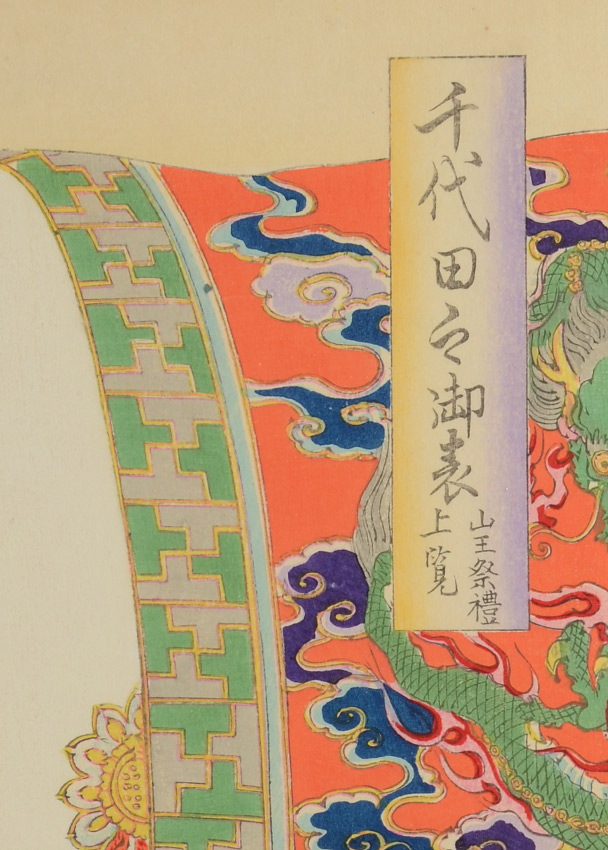 千代田之御表
山王祭禮
上覧